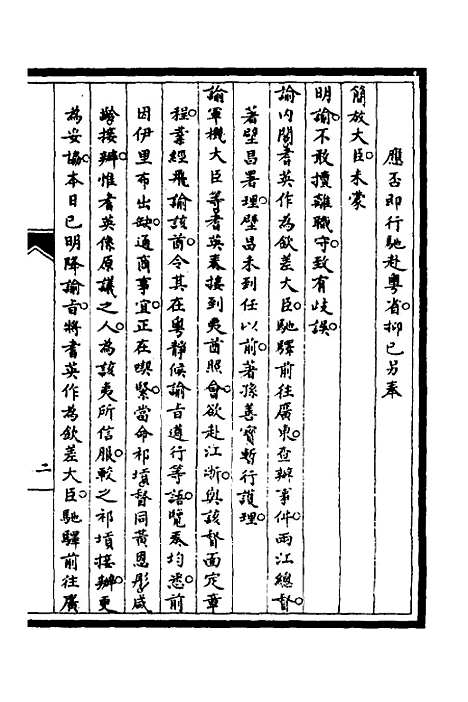 應否即行馳赴粵省。抑已另奉
簡放大臣。未蒙
明諭。不敢擅離職守。致有歧誤。
諭內閣。耆英作為欽差大臣。馳驛前往廣東。查辦事件。兩江總督。
著壁昌署理。壁昌未到任以前。著孫善寶暫行護理。
諭軍機大臣等。耆英奏接到夷酋照會。欲赴江浙。與該督面定章
程。業經飛諭該酋。令其在粵靜候諭旨遵行等語。覽奏均悉。前
因伊里布出缺。通商事宜。正在喫緊。當命祁𡎴督同黃恩彤咸
齡接辦。惟耆英係原議之人。為該夷所信服。較之祁𡎴接辦。更
為妥協。本日已明降諭旨。將耆英作為欽差大臣。馳驛前往廣
二